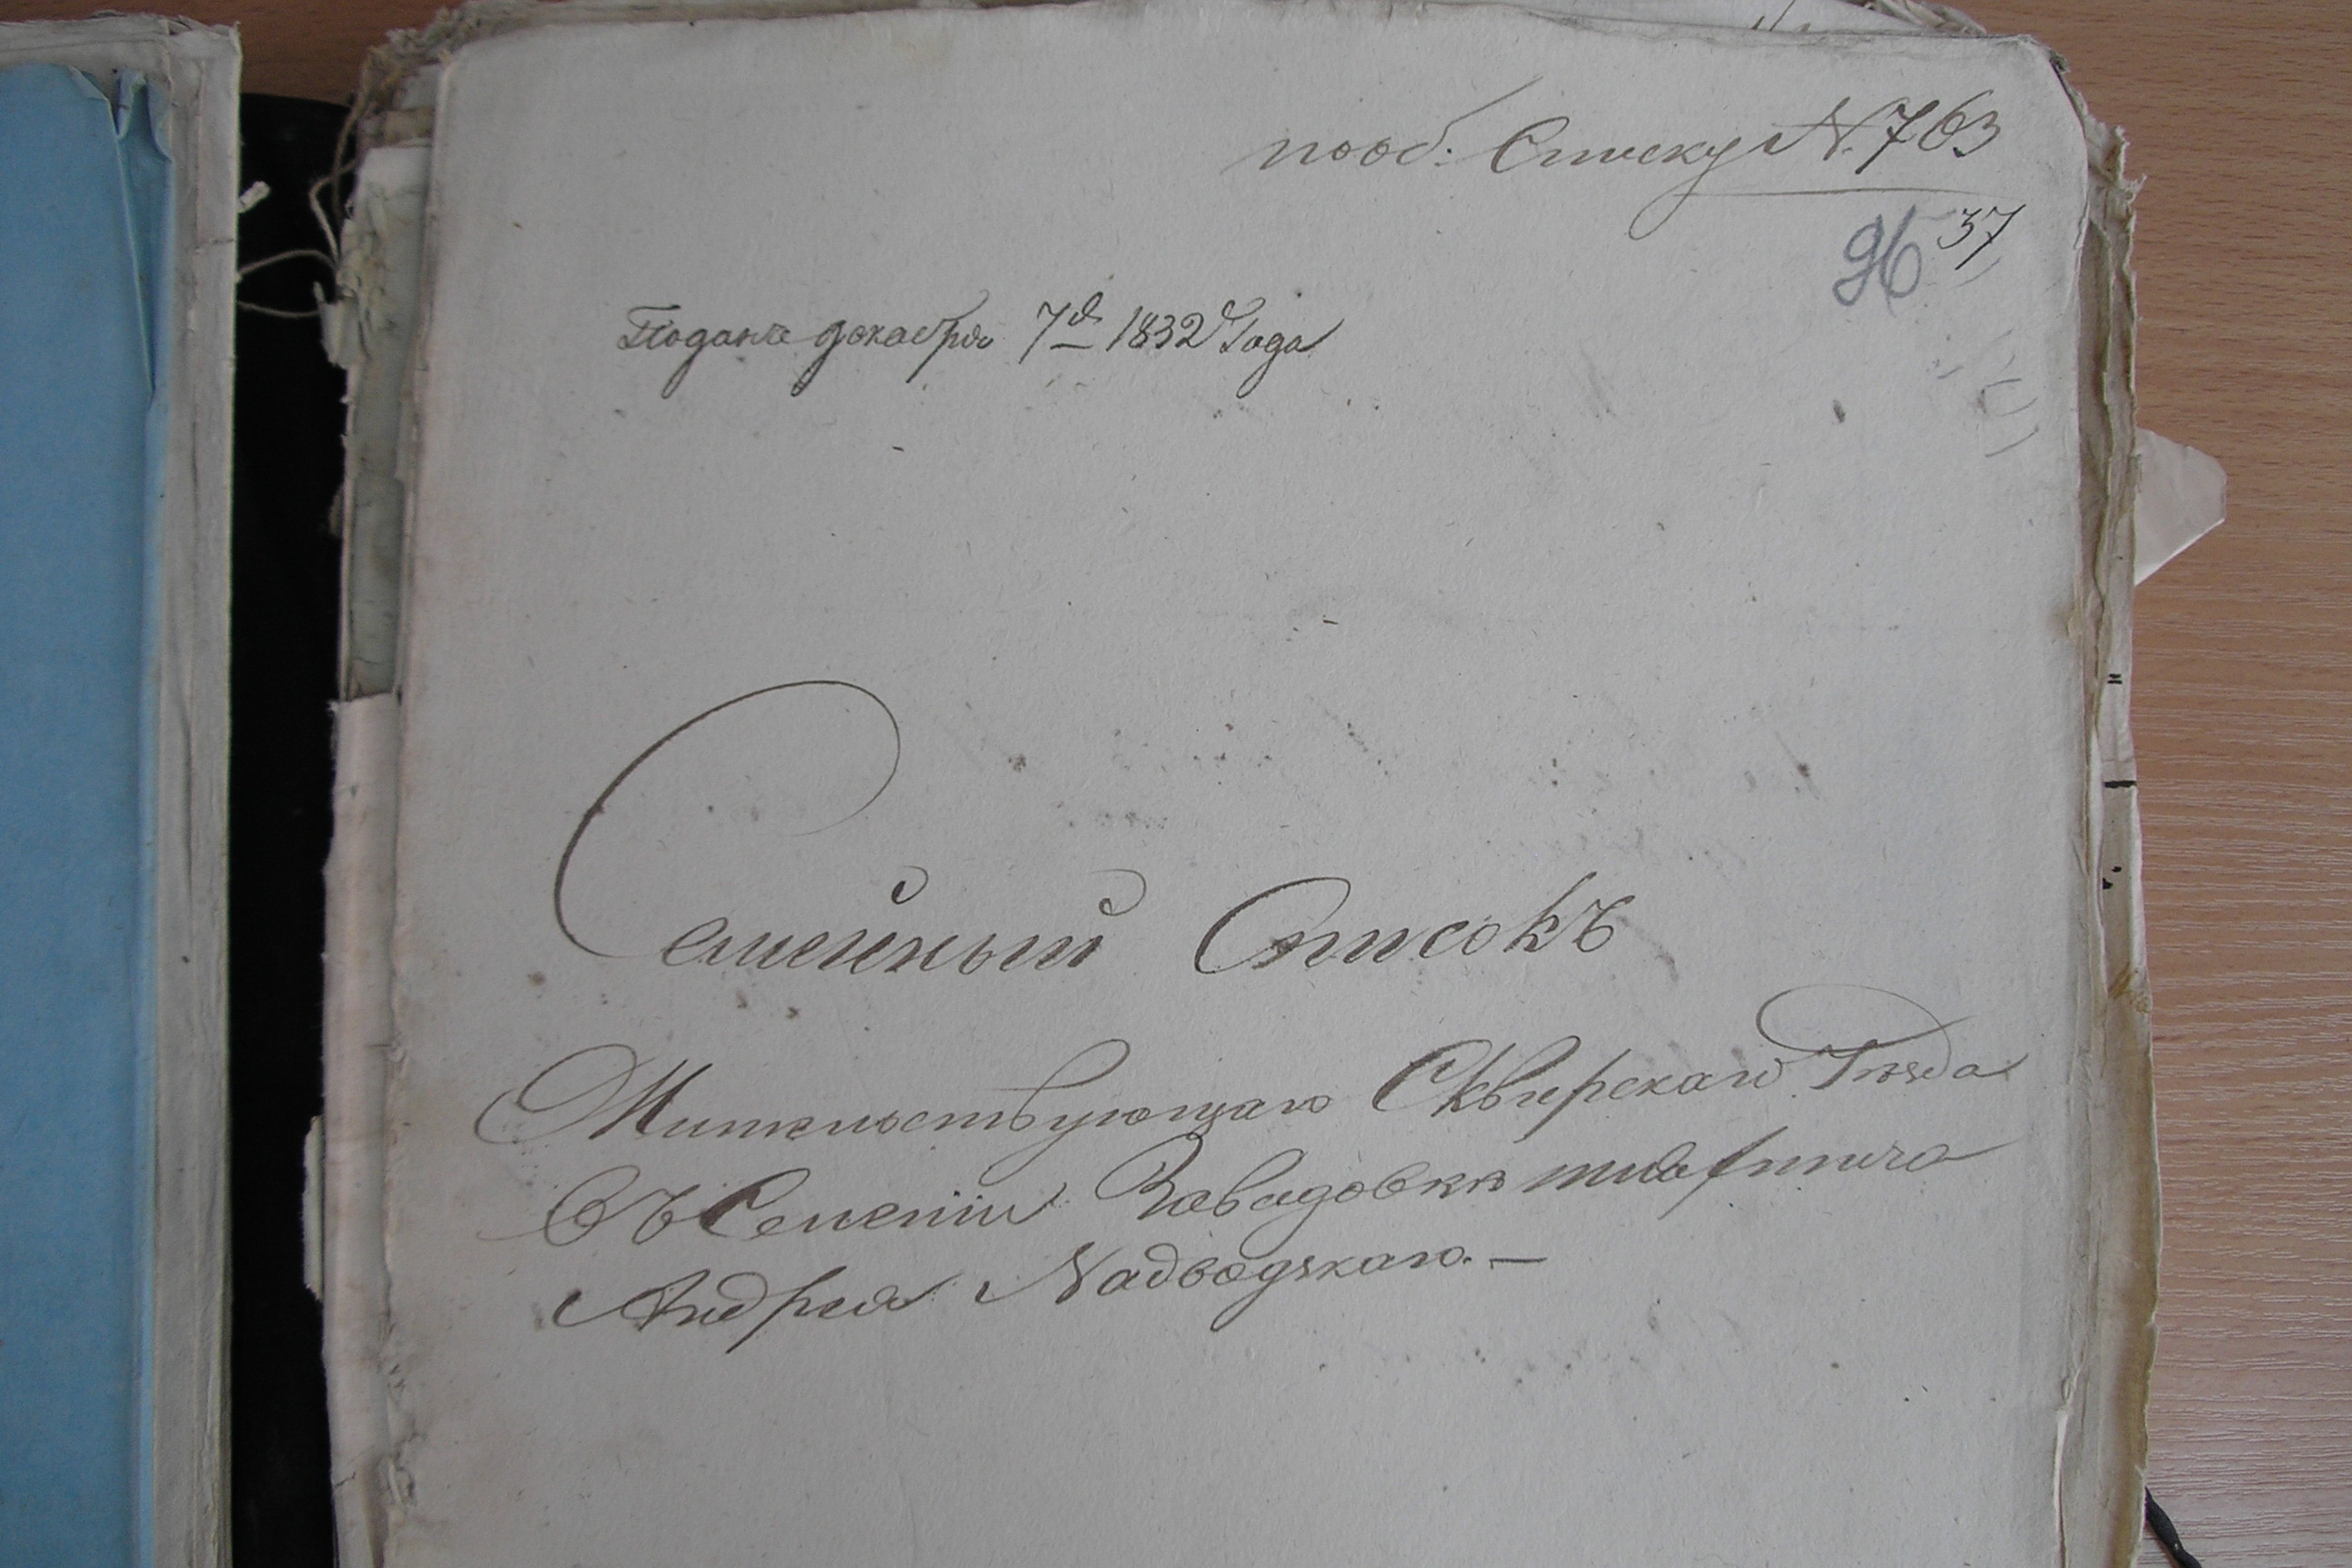 по об: Списку N. 763
37
96
Подане декабря 7д 1832 Года
Семейный Списокъ
Жительствующаго Сквирскаго Уѣзда
Въ Селеніи Завадовки шляхтича
Андрея Надводзкаго. —